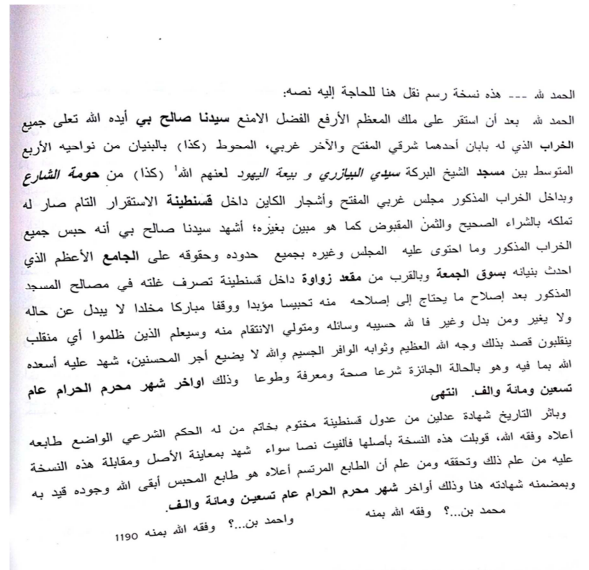 الحمد لله --- هذه نسخة رسم نقل هنا للحاجة إليه نصه:
الحمد لله بعد أن استقر على ملك المعظم الأرفع الفضل الامنع سيدنا صالح بي أيده الله تعلى جميع
الخراب الذي له بابان أحدهما شرقي المفتح والآخر غربي، المحوط (كذا) بالبنيان من نواحيه الأربع
المتوسط بين مسجد الشيخ البركة سيدي البيازري و بيعة اليهود لعنهم الله¹ (كذا) من حومة الشارع
وبداخل الخراب المذكور مجلس غربي المفتح وأشجار الكاين داخل قسنطينة الاستقرار التام صار له
تملكه بالشراء الصحيح والثمن المقبوض كما هو مبين بغيره؛ أشهد سيدنا صالح بي أنه حبس جميع
الخراب المذكور وما احتوى عليه المجلس وغيره بجميع حدوده وحقوقه على الجامع الأعظم الذي
احدث بنيانه بسوق الجمعة وبالقرب من مقعد زواوة داخل قسنطينة تصرف غلته في مصالح المسجد
المذكور بعد إصلاح ما يحتاج إلى إصلاحه منه تحبيسا مؤبدا ووقفا مباركا مخلدا لا يبدل عن حاله
ولا يغير ومن بدل وغير فا لله حسيبه وسائله ومتولي الانتقام منه وسيعلم الذين ظلموا أي منقلب
ينقلبون قصد بذلك وجه الله العظيم وثوابه الوافر الجسيم والله لا يضيع أجر المحسنين، شهد عليه أسعده
الله بما فيه وهو بالحالة الجائزة شرعا صحة ومعرفة وطوعا وذلك اواخر شهر محرم الحرام عام
تسعين ومائة والف. انتهى
وباثر التاريخ شهادة عدلين من عدول قسنطينة مختوم بخاتم من له الحكم الشرعي الواضع طابعه
أعلاه وفقه الله، قوبلت هذه النسخة بأصلها فألفيت نصا سواء شهد بمعاينة الأصل ومقابلة هذه النسخة
عليه من علم ذلك وتحققه ومن علم أن الطابع المرتسم أعلاه هو طابع المحبس أبقى الله وجوده قيد به
وبمضمنه شهادته هنا وذلك أواخر شهر محرم الحرام عام تسعين ومائة والف.
محمد بن...؟ وفقه الله بمنه واحمد بن...؟ وفقه الله بمنه 1190